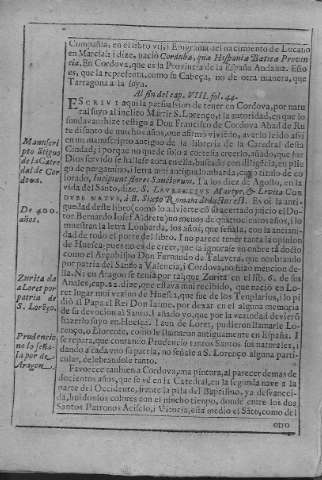 Compañia, en el libro vij. i Epigrama del nacimento de Lucano
en Marcial: i dize, nació Corduba, quæ Hispaniæ Batica Provin
cia. En Cordova, que es la Provincia de la España Andaluz. Esto
es, que la representa, como su Cabeça, no de otra manera, que
Tarragona a la suya.
Al fin del cap. VIII. fol. 44.
ESCRIVI aqui la persuasion de tener en Cordova, por natu
ral suyo al inclito Martir S. Lorenço, i la autoridad, en que lo
Don Francisco de Cordova Abad de Ru
te disunto de muchos años, que afirmó viviendo, averlo leido assi
en un manuscripto antiguo de la libreria de la Catedral desta
Ciudad; i porque no que de sola a cortesia creerlo, añado, que
Dios servido se
go de pergamino, i letra mui antigua lombarda, cuyo titulo es co
lorado, Incipiunt flores Sanctorum. I a los diez de Agosto, en la
vida del Santo, dize, S. LAVRENCIVS Martyr, & Levita COR
DVBE NATVS, à B. Sixto Romam deductus est. Es oi la anti
guedad deste libro, como lo advierte el
tor Bernardo Iosef Aldrete, no menos de quatrocientos años, i lo
muestran la letra Lombarda, los años, que señala, con la ancian
dad de todo el porte del libro. I no parece tener tanta opinion
de Huesca, pues no es de creer, que la ignorasse un
como el Arçobispo Don Fernando de Talavera, que nombrando
por patria del Santo a Valencia, i Cordova, no hizo mencion de
lla. Ni en Aragon se tenia por tal, que Zurita en el lib. 6. de sus
Anales, cap. 22. dize, que estava mui recibido, que nació en Lo-
ret lugar mui vezino de Huesca, que fue de los Templarios, i lo pi
dió al Papa el Rei Don Iaime, por dexar en el alguna memoria
de su devocion al Santo. I añado yo, que por la vezindad de
hazerlo suyo
lo, o Llorente, como le llamaron antiguamente en España. I
se repara, que contando Prudencio tantos Santos sus naturales, i
dandolos a cada uno su patria, no señale a S. Lorenço alguna parti
cular, celebrandolo tanto.
Favorecer tambien a Cordova, una pintura, al parecer de mas de
docientos años, que se vé en la Catedral, en la segunda nave a la
parte del Occidente, frente la pila del Baptismo, ya desvaneci
da, huidos los colores con el mucho tiempo, donde entre los dos
Santos Patronos Acisclo, i Vitoria, está medio el Sãto, como del
otro
Manuscri
pto antiguo
de la Cate
dral de Cor
dova.
De 400.
años.
Zurita da
a Loret por
patria de
S. Lorẽço.
Prudencio
no lo seña
la por de
Aragon.